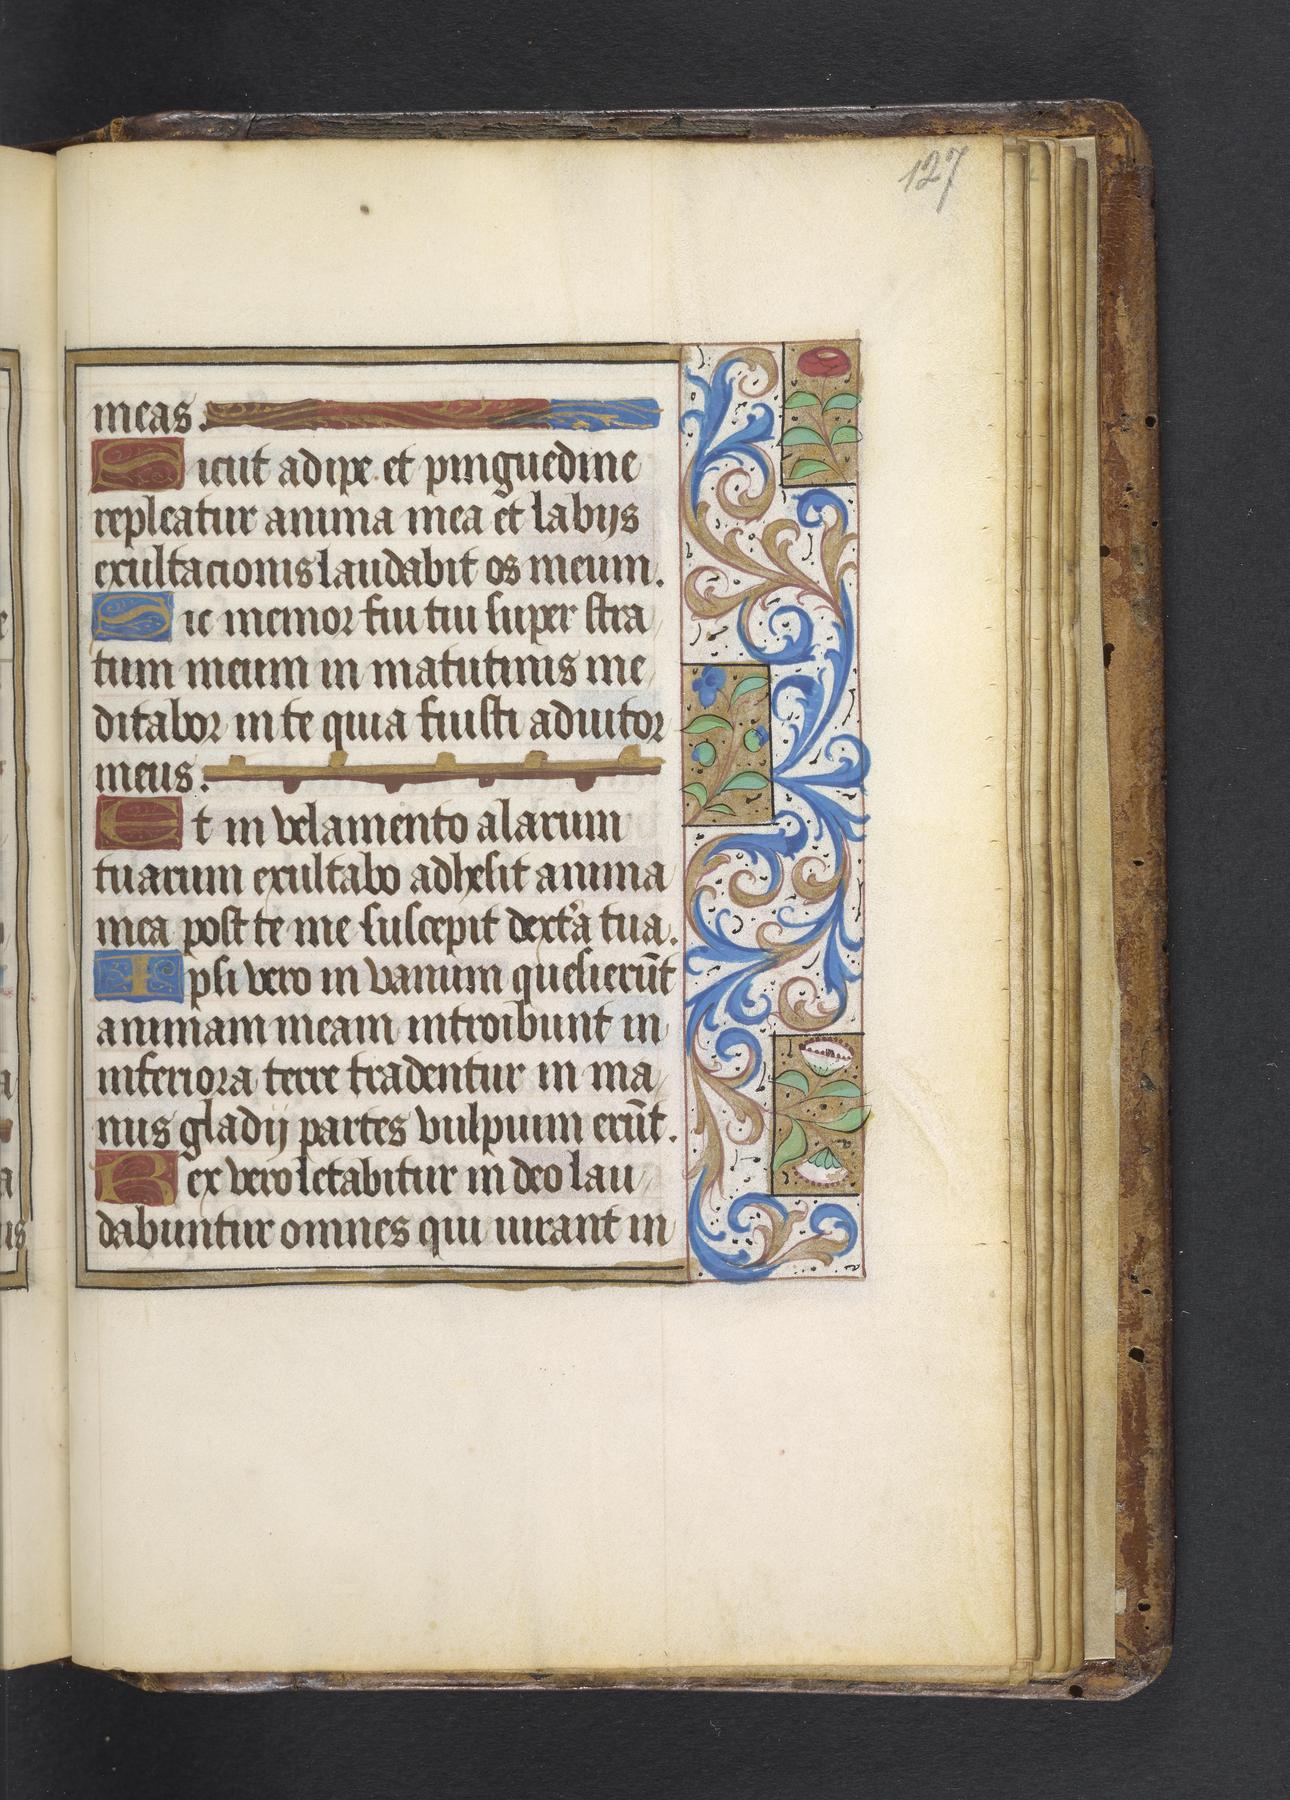 127
meas.
Sicut adipe et pinguedine
repleatur anima mea et labijs
exultacionis laudabit os meum.
Sic memor fiu tiu super stra
tum meum in matutinis me
ditabor in te quia fuisti adiutor
meus.
Et in velamento alarum
tuarum exultabo adhesit anima
mea post te me suscepit dext'a tua.
Ipsi vero in vanum quesierūt
animam meam introibunt in
inferiora terre tradentur in ma
nus gladij partes vulpium erūt.
Rex vero letabitur in deo lau
dabuntur omnes qui iurant in